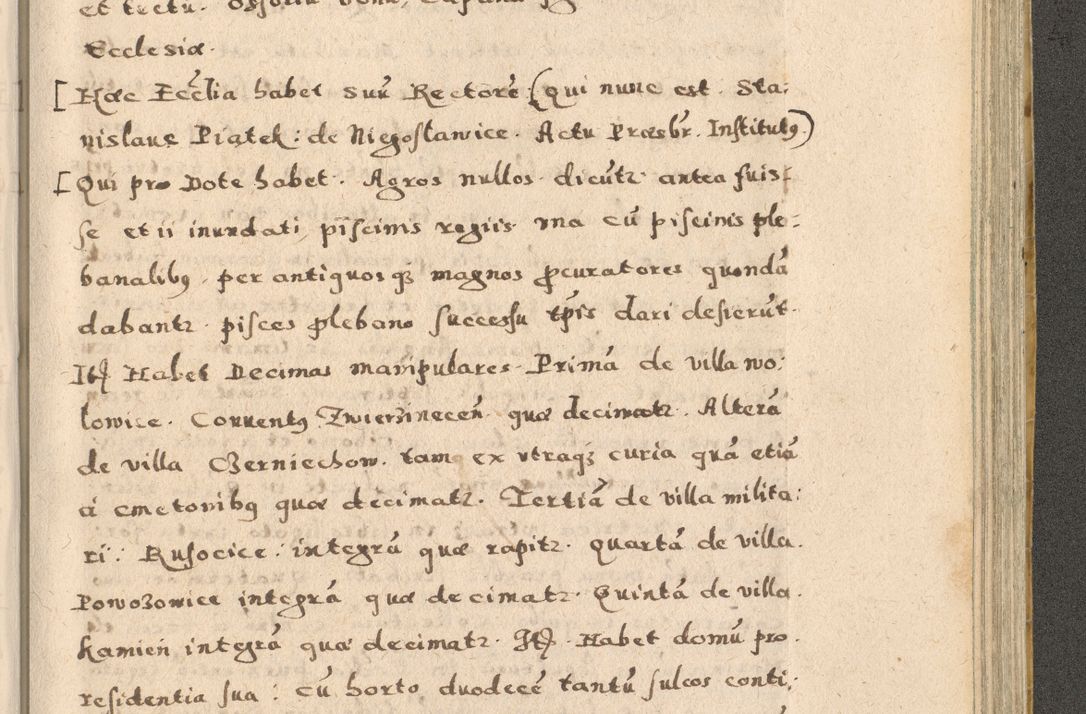 Ecclesiæ.
[Hæc Ecclia habet suũ Rectorẽ (qui nunc est Sta:
nislaus Piątek: de Niegoslawice. Actu Præsbr. Institutꝰ)
[Qui pro Dote habet. Agros nullos dicũtr antea fuis
se et ii inundati piscinis regiis una cũ piscinis ple:
banalibꝰ. per antiquos qꝫ magnos ꝓcuratores quondã
dabantr. pisces plebano successu tp̃is dari desierũt.
Itẽ Habet Decimas manipulares. Primã de villa wo:
lowice. Conventꝰ Zwierzinecen̄ quæ decimatr. Alterã
de villa Czerniechow. tam ex utraqꝫ curia quã etiã
a cmetonibꝰ quæ decimatr. Tertiã de villa milita:
ri: Rusocice. integrã quæ rapitr. Quartã de villa.
Powozowice integrã quæ decimatr. Quintã de villa.
Kamień integrã quæ decimatr. Itẽ. Habet domũ pro
residentia sua: cũ horto duodecẽ tantũ sulcos conti: